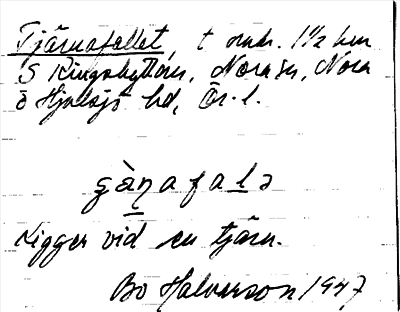 Tjärnafallet, t omr. 1½ km
S Ringshyttan, Nora sn, Nora
o Hjulsjö bd, Ör. l.
gàṉafaḻə
Ligger vid en tjärn.
Bo Halvarson 1947